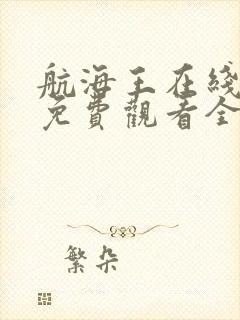 航海王在綫
免費觀看全
繁朵